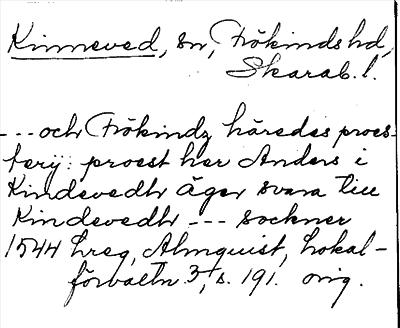 Kinneved, sn, Frökinds hd,
Skarab. l.
--- och Frökindz häredes proes-
terij: proest her Anders i
Kindevedh äger svara till
Kindevedh --- sockner
1544 hreg, Almquist, Lokal-
förvaltn. 3, s. 191. orig.